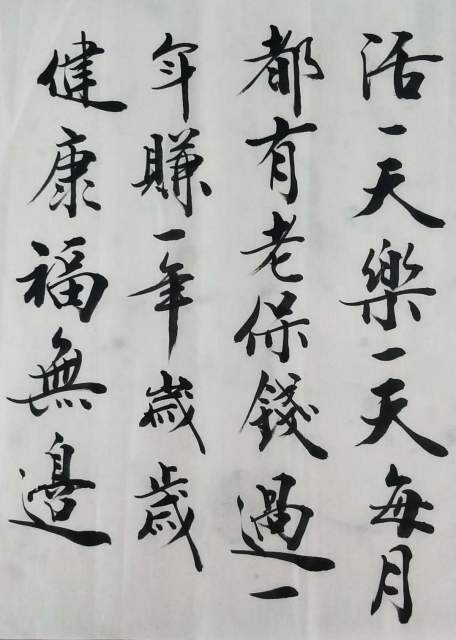 活一天樂一天每月
都有老保錢過一
年賺一年歲歲
健康福無邊